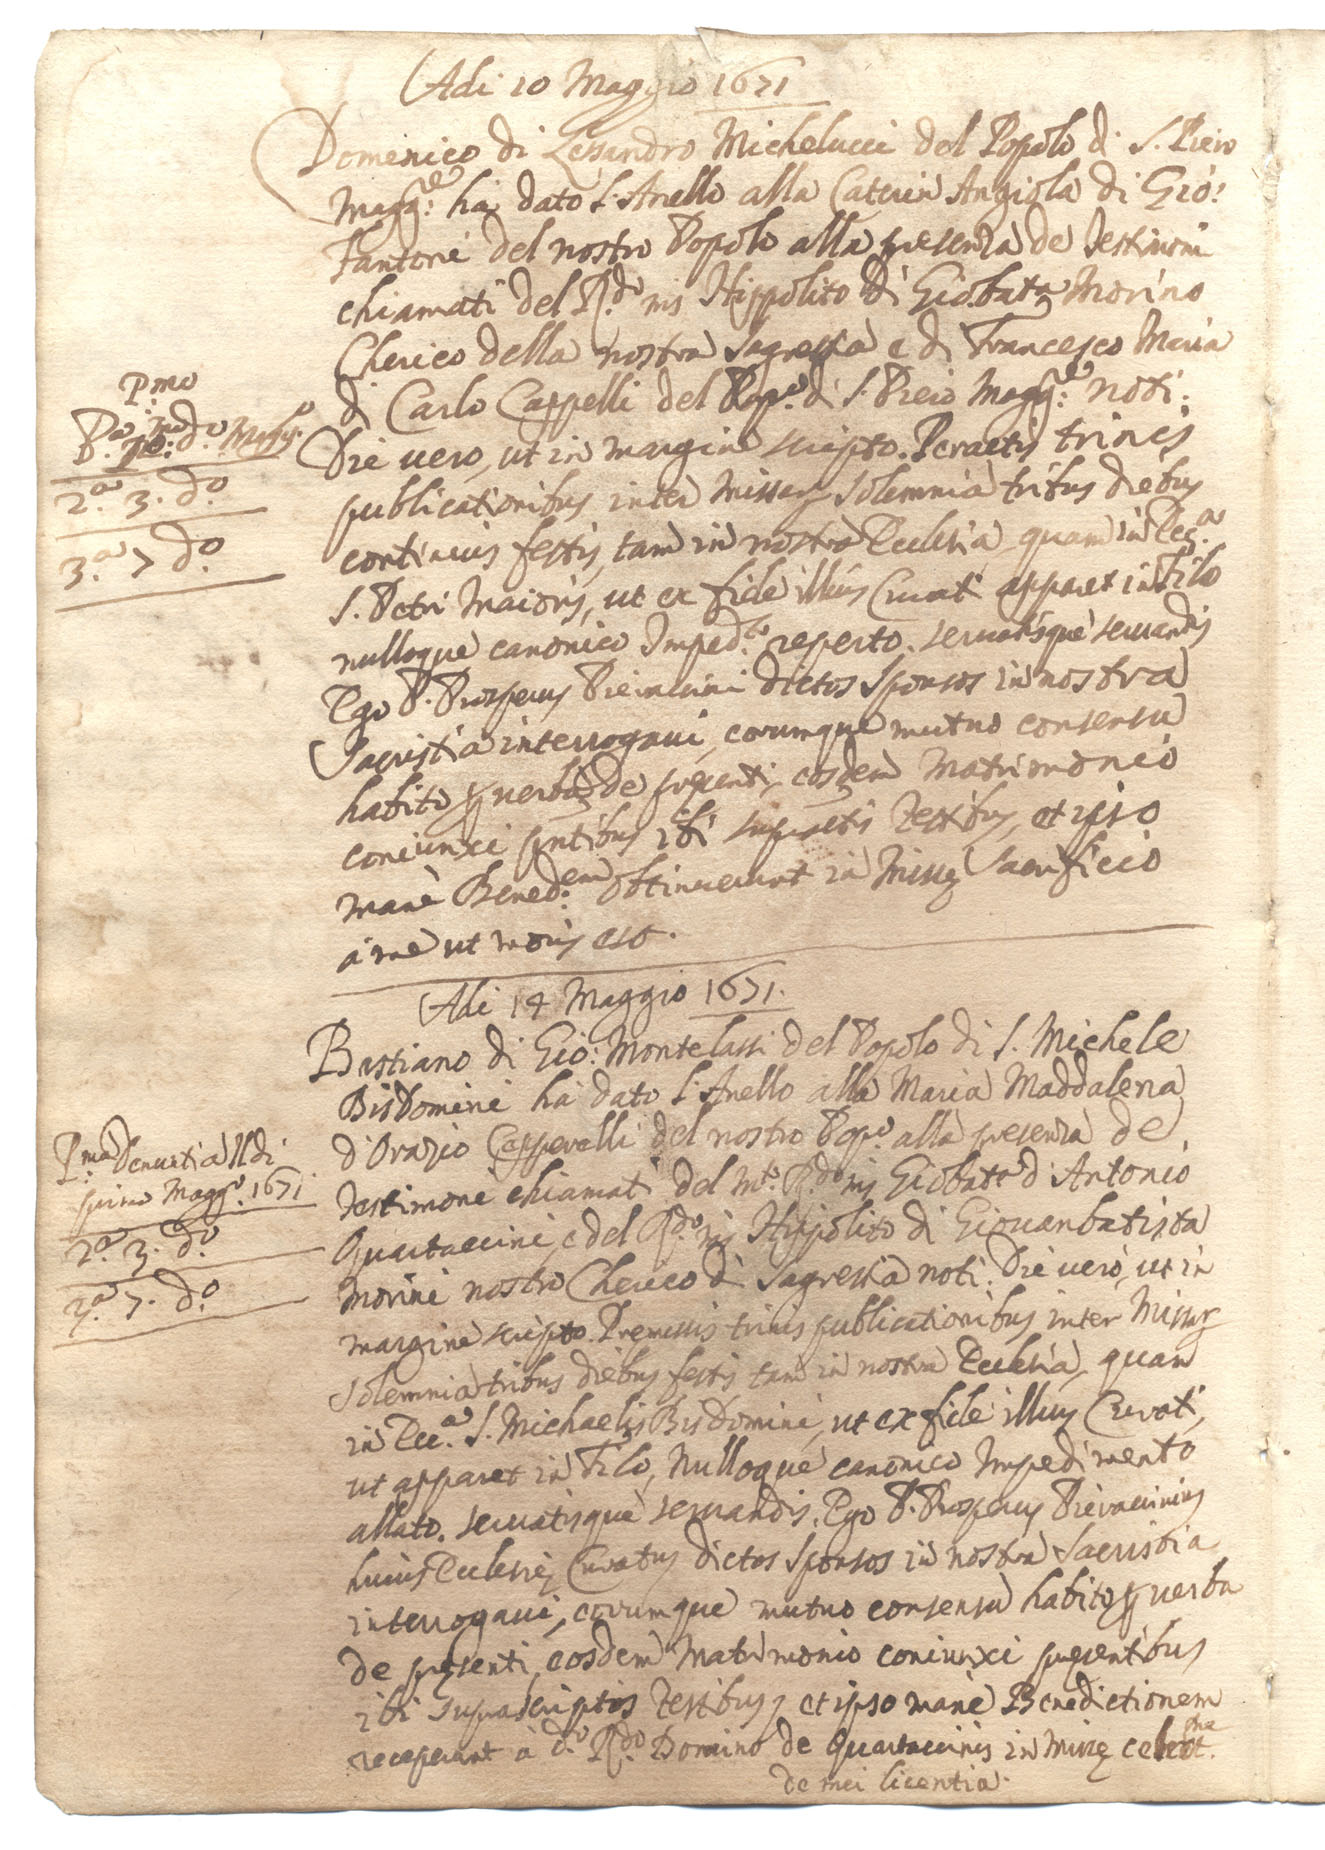 Adi 10 Maggio 1671
Domenico di Lesandro Michelucci del Popolo di S. Piero
Magg.re ha dato l'Anello alla Caterin Angiola di Gio:
Fantoni del nostro Popolo alla presenza de Testimoni
chiamati del R.do Hippolito di Gio.bata Morino
Cherico della nostra Sagrestia e di Francesco Maria
di Carlo Cappelli del Pop.o di S. Piero Magg.re noti.
Die uero, ut in margine scripto. Peractis trinis
publicationibus inter Missarum solemnia tribus diebus
continuis festis, tam in nostra Ecclesia quam in Ecc.a
S. Petri Maioris, ut ex fide illius Curati apparet in Filo
nulloque canonico Imped.to reperto. seruatisque seruandis
Ego P. Prosperus dictos Sponsos in nostra
Sacristia interrogaui, eorumque mutuo consensu
habito per uerba de presenti, eosdem Matrimonio
coniunxi pntibus ibi Testibus, et ipso
mane Bened.em obtinuerunt in Misse Sacrificio
a me ut moris est.
Adi 14 Maggio 1671.
Bastiano di Gio: Montelassi del Popolo di S. Michele
BisDomini ha dato l'Anello alla Maria Maddalena
d'Orazio del nostro Pop.o alla presenza de
Testimone chiamati del M.to R.do Giobat.a d'Antonio
Quartaccini, e del R.do Hippolito di Giouanbatista
Morini nostro Cherico di Sagrestia noti. Die uero, ut in
margine scripto. Premissis trinis publicationibus inter Missar
solemnia tribus diebus festis tam in nostra Ecclesia, quam
in Ecc.a S. Michaelis BisDomini, ut ex fide illius Curati,
ut apparet in Filo, Nulloque canonico Impedimento
allato. seruatisque seruandis. Ego P. Prosperus Pieraccinius
huius Ecclesie Curatus dictos Sponsos in nostra Sacristia
interrogaui, eorumque mutuo consensu habito per uerba
de presenti, eosdem Matrimonio coniunxi presentibus
ibi suprascriptis Testibus, et ipso mane Benedictionem
receperunt a d.o R.do Domino de Quartaccinis in Misse
de mei licentia.
P.mo
P.a d.o Magg.o
2.a 3. d.o
3.a 7 d.o
P.ma Denuntia il di
primo Magg.o 1671
2.a 3. d.o
3.a 7. d.o